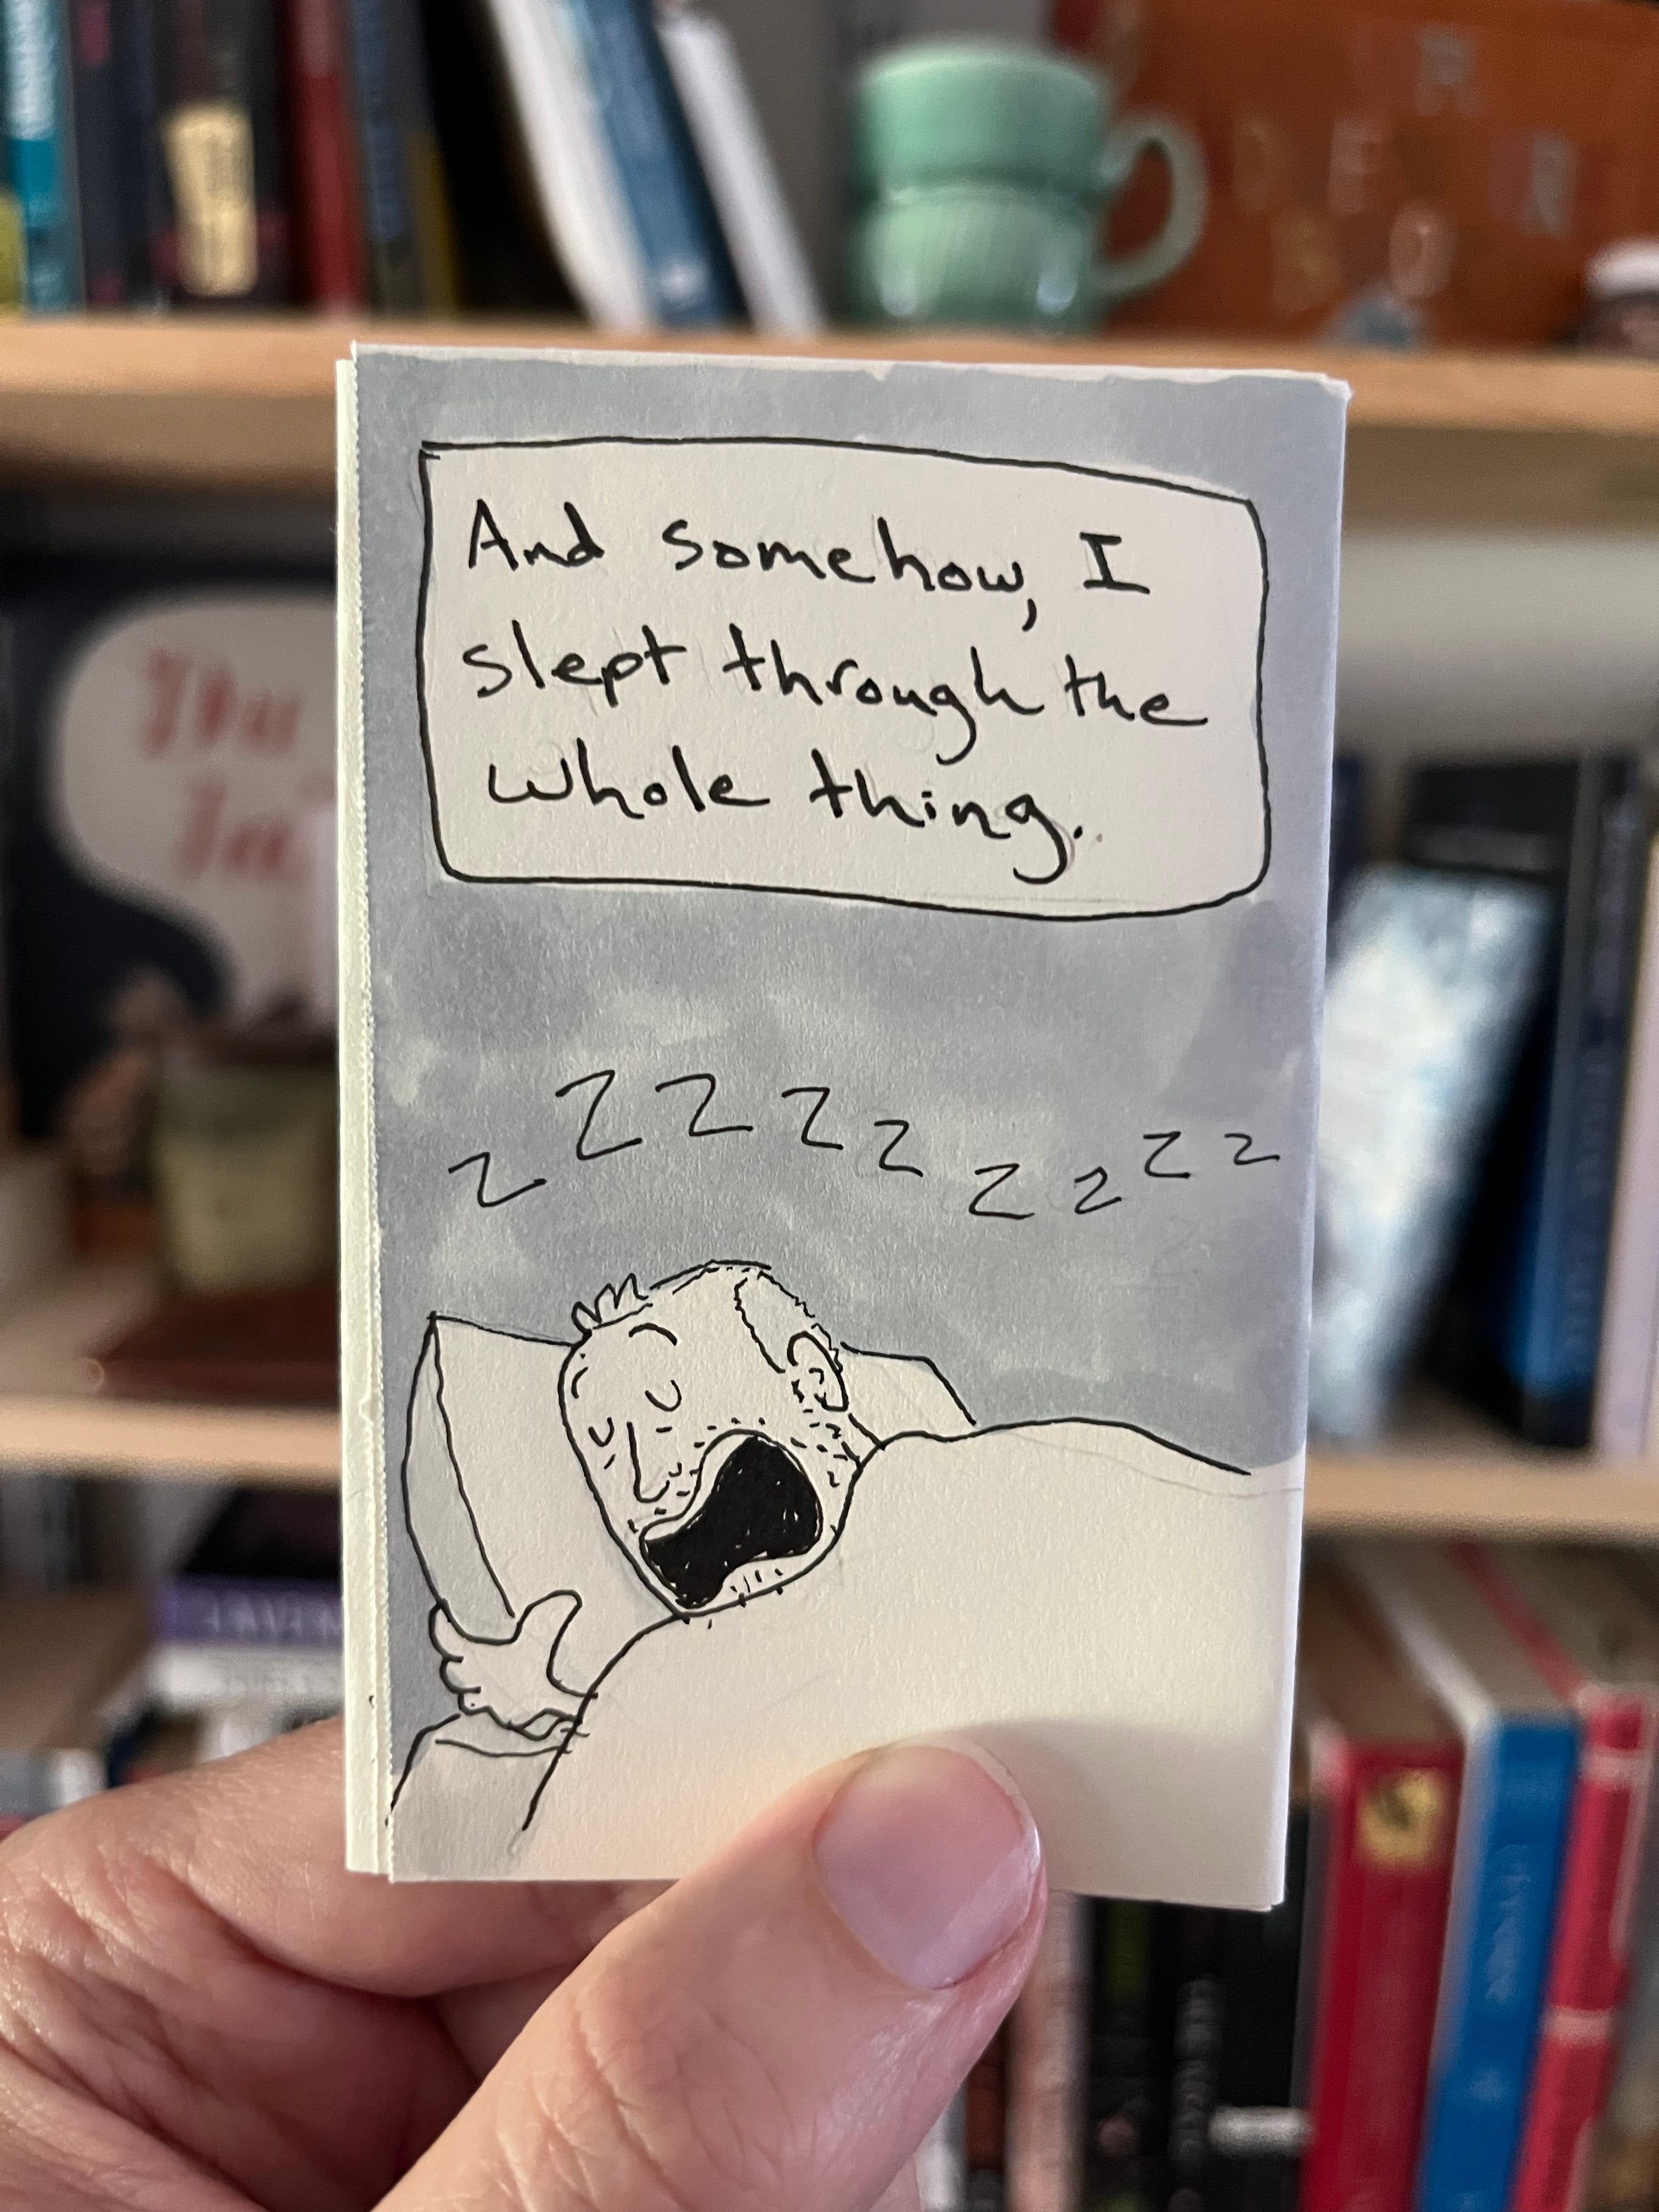 And somehow, I
slept through the
whole thing.
z Z Z Z z z z z z